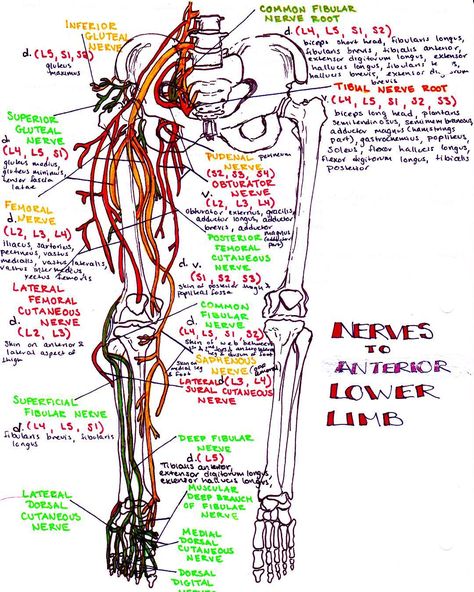 INFERIOR
GLUTEAL
NERVE
d. (L5, S1, S2)
gluteus
maximus
COMMON FIBULAR
NERVE ROOT
d. (L4, L5, S1, S2)
biceps short head, fibularis longus,
fibularis brevis, tibialis anterior,
extensor digitorum longus, extensor
hallucis longus, fibularis
hallucis brevis, extensor
brevis
TIBIAL NERVE ROOT
(L4, L5, S1, S2, S3)
biceps long head, plantaris
semitendinosus, semimembranosus,
adductor magnus (hamstrings
part), gastrocnemius, popliteus,
soleus, flexor hallucis longus,
flexor digitorum longus, tibialis
posterior
SUPERIOR
GLUTEAL
NERVE
d.
(L4, L5, S1)
gluteus medius,
gluteus minimus,
tensor fascia
latae
PUDENAL perineum
NERVE
(S2, S3, S4)
OBTURATOR
NERVE
v.
(L2, L3, L4)
obturator externus, gracilis,
adductor longus, adductor
brevis, adductor
magnus
FEMORAL
d. NERVE
(L2, L3, L4)
iliacus, sartorius,
pectineus, vastus
medialis, vastus lateralis,
vastus intermedius
rectus femoris
POSTERIOR
FEMORAL
CUTANEOUS
NERVE
d. v.
(S1, S2, S3)
skin of posterior thigh &
popliteal fossa
LATERAL
FEMORAL
CUTANEOUS
d. NERVE
(L2, L3)
skin on anterior &
lateral aspect of
thigh
COMMON
FIBULAR
d. NERVE
(L4, L5, S1, S2)
skin of web between
& dorsum of foot
SAPHENOUS
NERVE
skin on
medial leg
& foot
(L3, L4)
LATERAL
SURAL CUTANEOUS
NERVE
NERVES
TO
ANTERIOR
LOWER
LIMB
SUPERFICIAL
FIBULAR NERVE
d. (L4, L5, S1)
fibularis brevis, fibularis
longus
DEEP FIBULAR
NERVE
d. (L5)
Tibialis anterior,
extensor digitorum longus,
extensor hallucis longus,
MUSCULAR
DEEP BRANCH
OF FIBULAR
NERVE
LATERAL
DORSAL
CUTANEOUS
NERVE
MEDIAL
DORSAL
CUTANEOUS
NERVE
DORSAL
DIGITAL